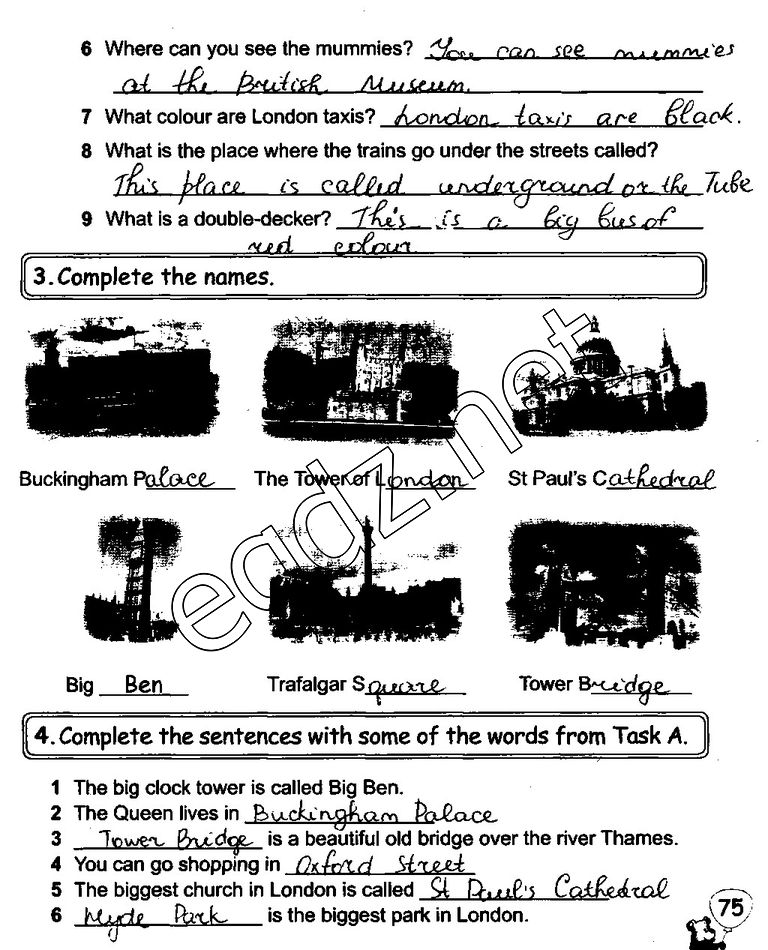 6 Where can you see the mummies? You can see mummies
at the British Museum.
7 What colour are London taxis? London taxis are black.
8 What is the place where the trains go under the streets called?
This place is called underground or the Tube
9 What is a double-decker? This is a big bus of
red colour
3. Complete the names.
Buckingham Palace The Tower of London St Paul's Cathedral
eadz.net
Big Ben Trafalgar Square Tower Bridge
4. Complete the sentences with some of the words from Task A.
1 The big clock tower is called Big Ben.
2 The Queen lives in Buckingham Palace
3 Tower Bridge is a beautiful old bridge over the river Thames.
4 You can go shopping in Oxford Street
5 The biggest church in London is called St Paul's Cathedral
6 Hyde Park is the biggest park in London.
75